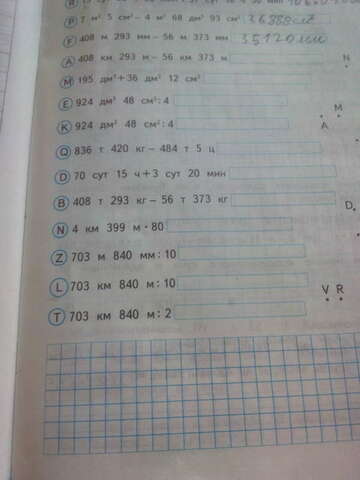 P 7 м² 5 см² – 4 м² 68 дм² 93 см²
F 408 м 293 мм – 56 м 373 мм 35120 мм
A 408 км 293 м – 56 км 373 м
M 195 дм² + 36 дм² 12 см²
N
E 924 дм² 48 см² : 4
M
K 924 дм² 48 см² : 4
A
Q 836 т 420 кг – 484 т 5 ц
D 70 сут 15 ч + 3 сут 20 мин
B 408 т 293 кг – 56 т 373 кг
D
N 4 км 399 м · 80
Z 703 м 840 мм : 10
L 703 км 840 м : 10
V R
T 703 км 840 м : 2